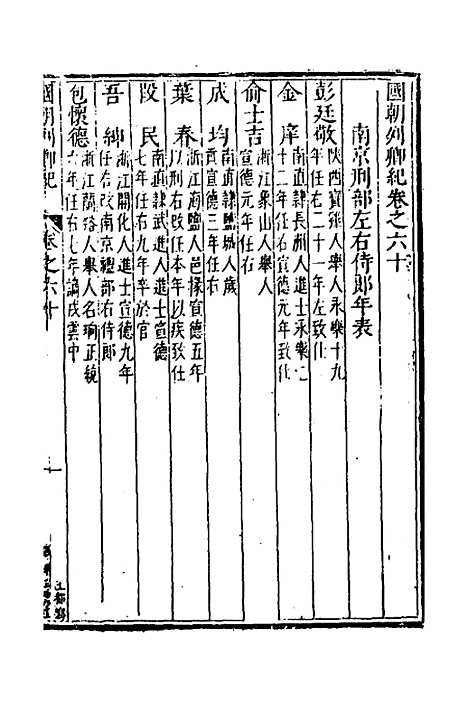 國朝列卿紀卷之六十
南京刑部左右侍郎年表
彭廷敬 陝西寶雞人舉人永樂十九
年任右二十一年左致仕
金庠 南直隸長洲人進士永樂二
十二年任右宣德元年致仕
俞士吉 浙江象山人舉人
宣德元年任右
成均 南直隸鹽城人歲
貢宣德三年任右
葉春 浙江海鹽人邑掾宣德五年
以刑右改任本年以疾致仕
段民 南直隸武進人進士宣德
七年任右九年卒於官
吾紳 浙江開化人進士宣德九年
任右改南京禮部右侍郎
包懷德 浙江蘭谿人舉人名瑜正統
六年任右七年謫戍雲中
國朝列卿紀 卷之六十
一